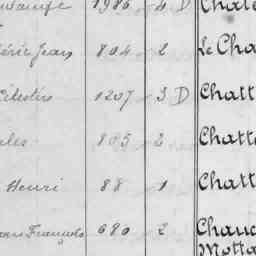 1986 4 D Chate
Jean 804 2 Le Cha
Célestin 1207 3 D Chatt
les 805 2 Chatt
Henri 88 1 Chatt
François 680 2 Chauc
Motta